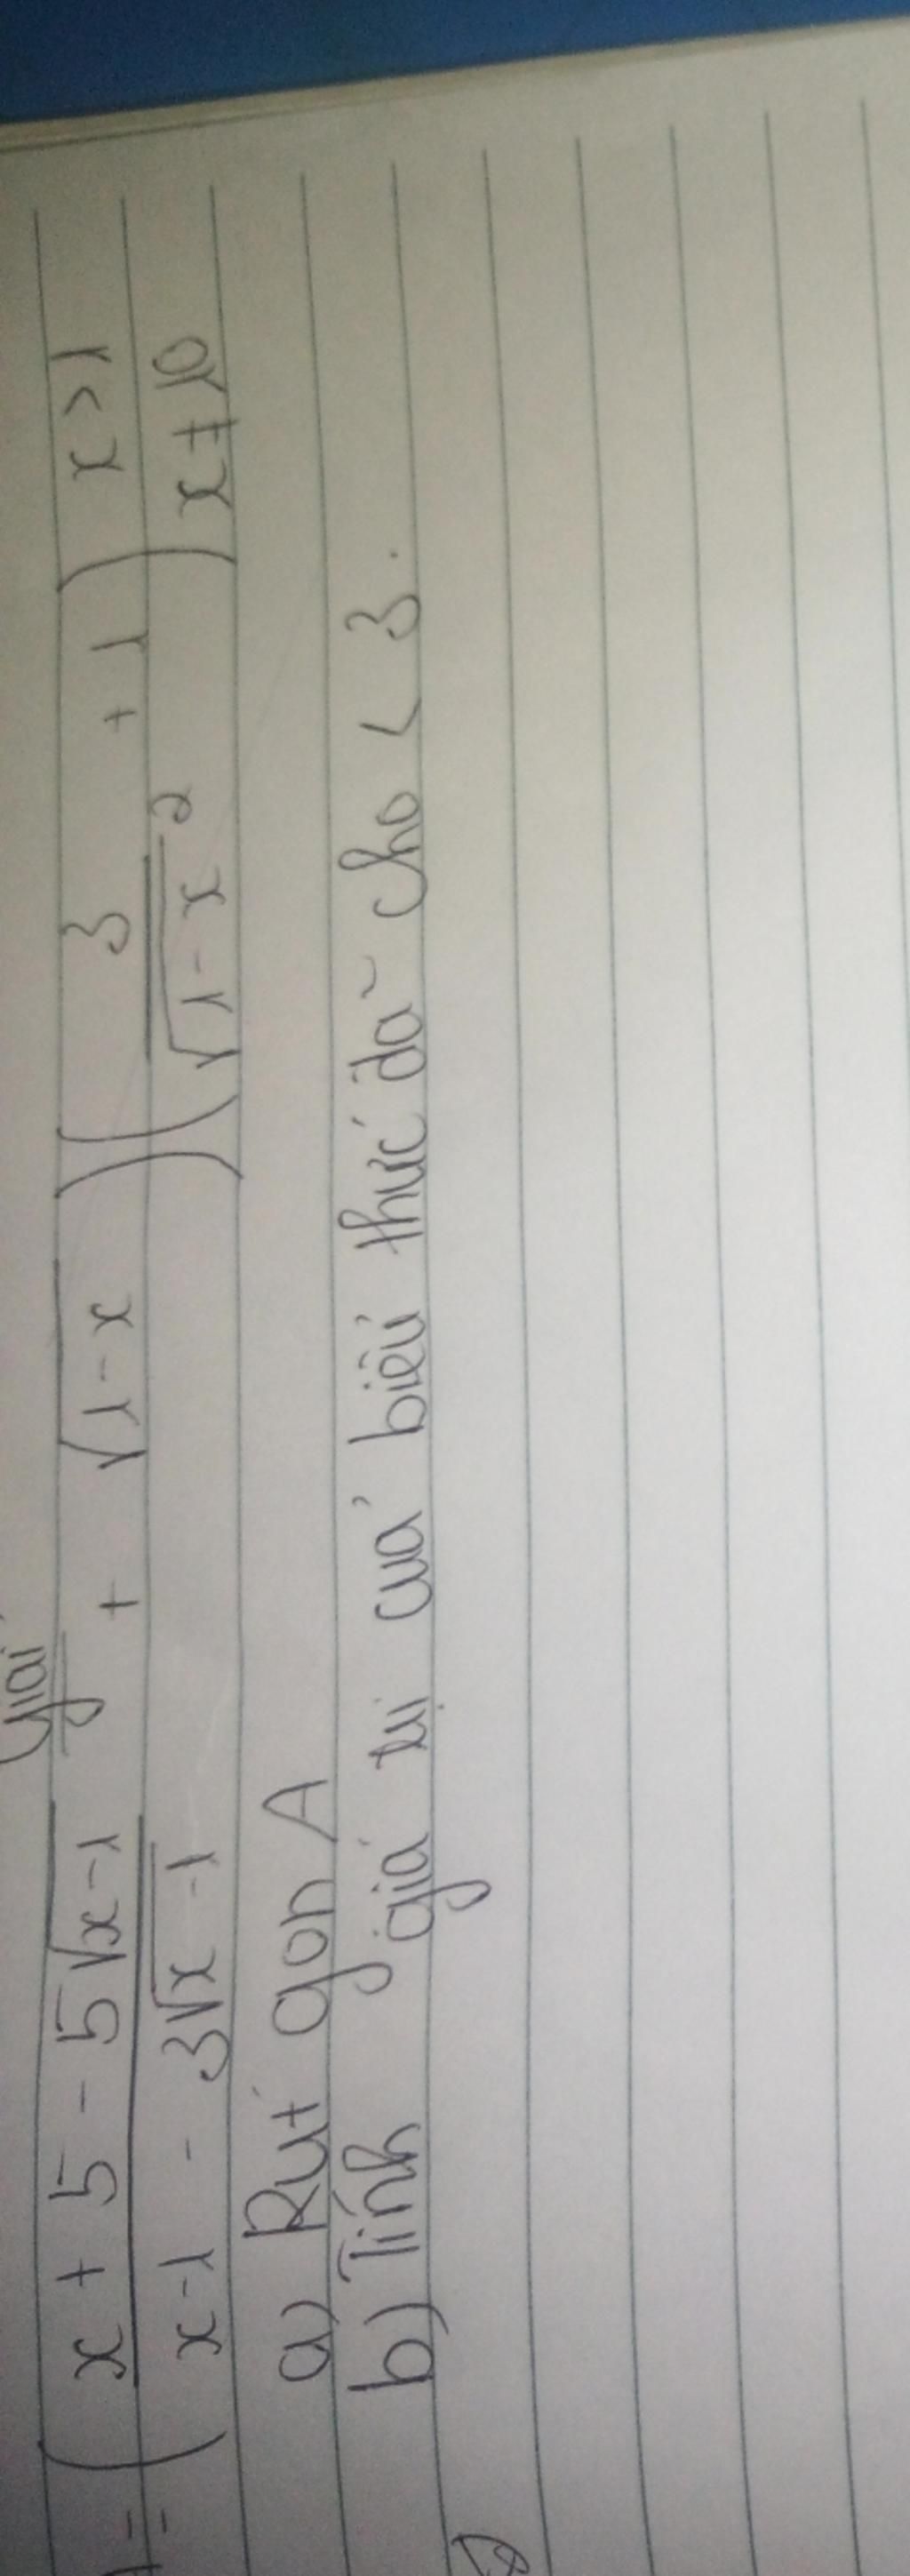 Giải
A = ( x + 5 - 5√x-1 / x-1 - 3√x-1 + √1-x ) ( 3 / √1-x² + 1 ) x > 1
x ≠ 10
a) Rút gọn A
b) Tính giá trị của biểu thức đã cho < 3.